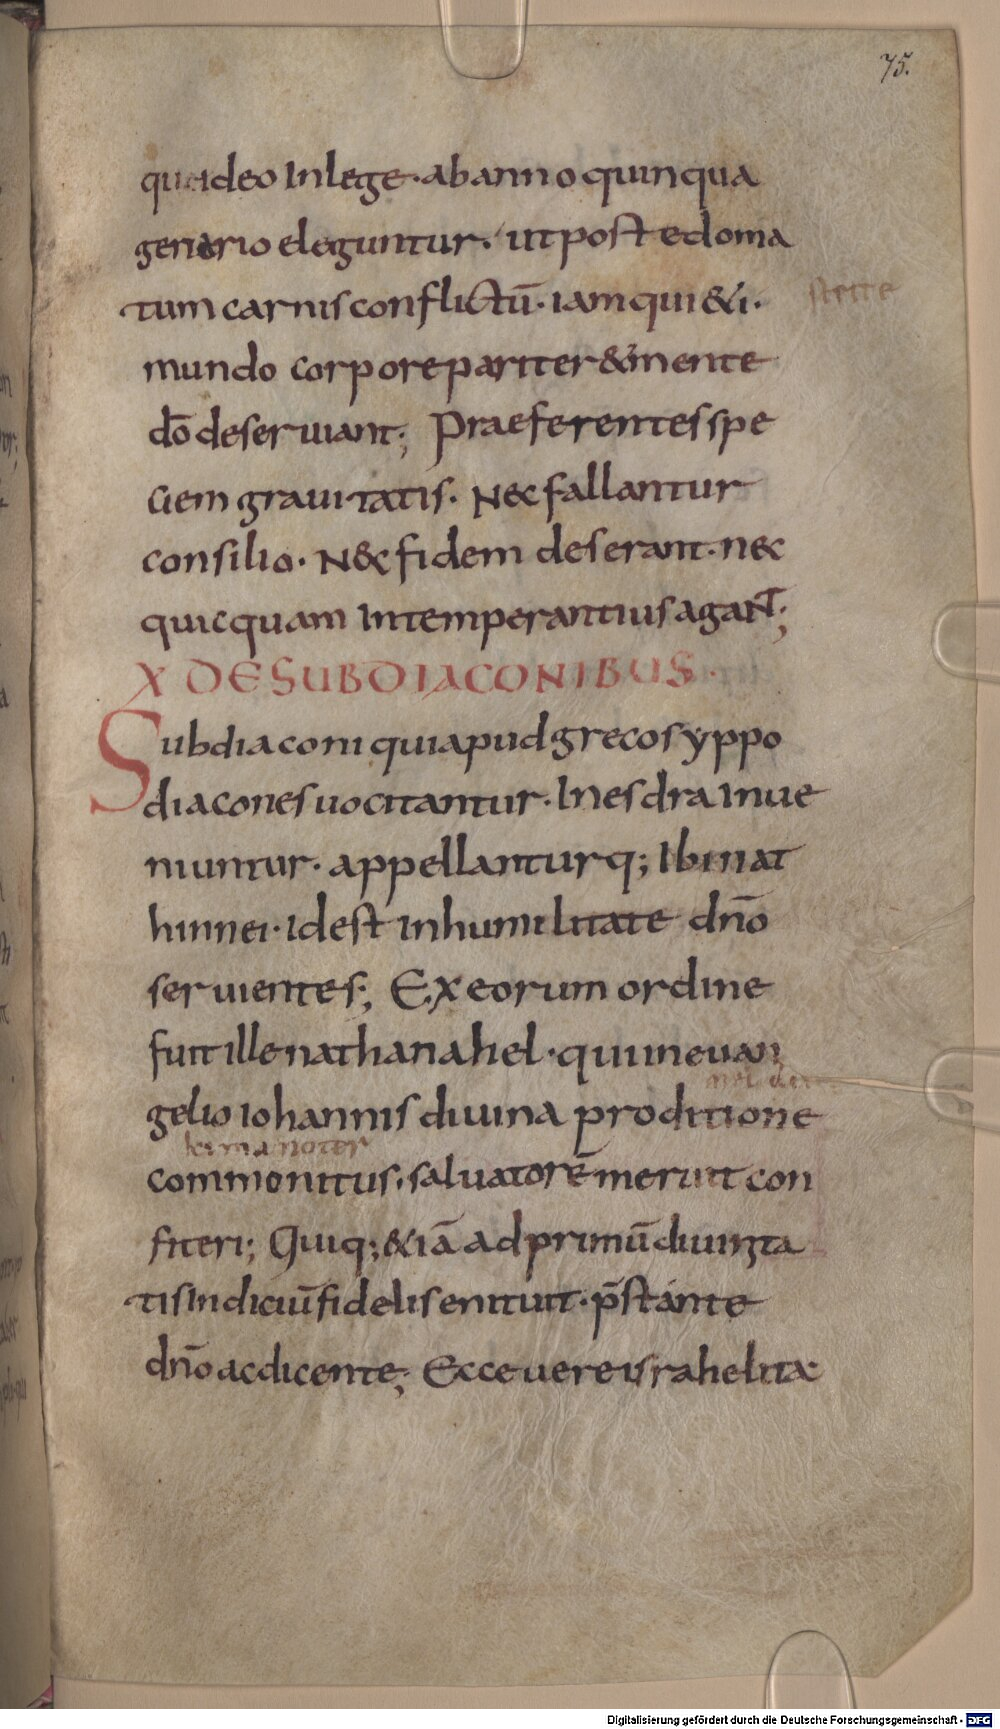 75.
qui ideo In lege · ab anno quinqua
genario eleguntur · ut post edoma
tum carnis conflictū · iam qui&i ·
mundo corpore pariter & mente
dō deseruiant; Praeferentes spe
ciem grauitatis · Nec fallantur
consilio · N& fidem deserant · nec
quicquam Intemperantius agaNT;
X DE SUBDIACONIBUS ·
Subdiaconi qui apud grecos yppo
diacones uocitantur · In esdra Inue
niuntur · appellanturq; Ibi nat
hinnei · Id est In humilitate dn̄o
seruientes; Ex eorum ordine
fuit ille nathanahel · qui in euan
gelio iohannis diuina proditione
commonitus · saluatorē meruit con
fiteri; Quiq; &iā ad primū diuinita
tis Indiciū fidelis enituit · p̄stante
dn̄o ac dicente; Ecce uere israhelitae
Digitalisierung gefördert durch die Deutsche Forschungsgemeinschaft - DFG